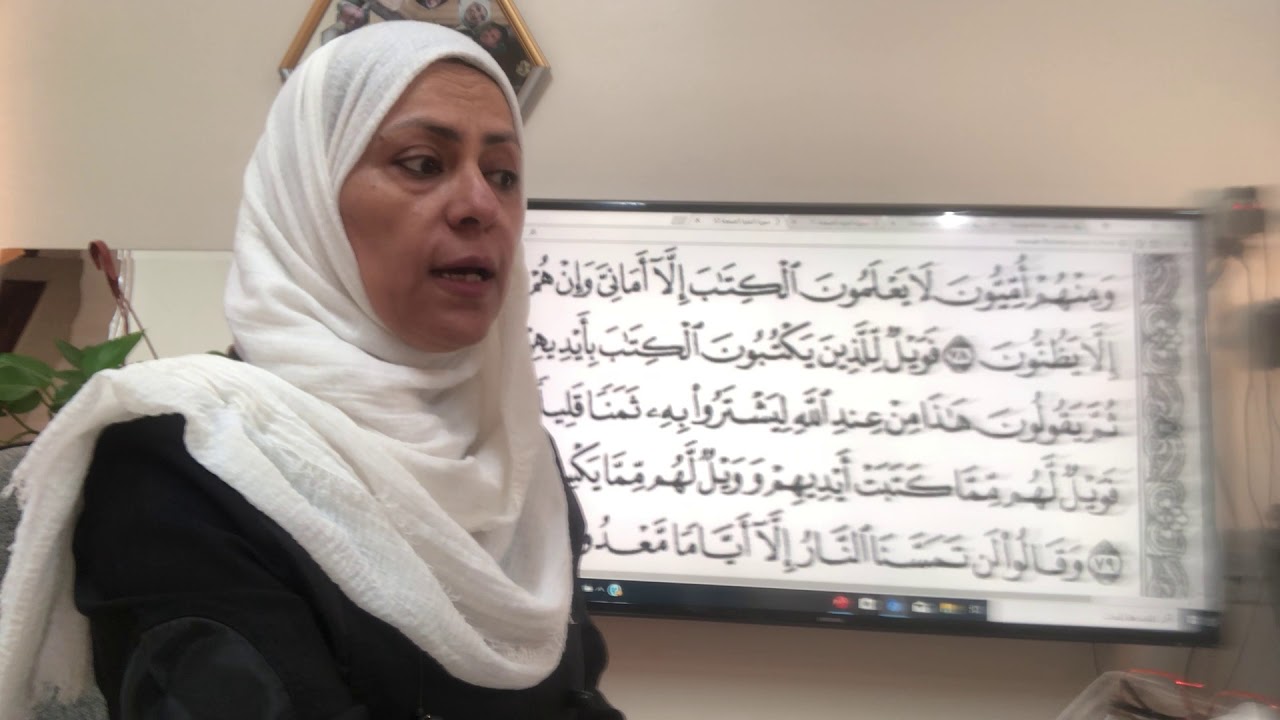 وَمِنْهُمْ أُمِّيُّونَ لَا يَعْلَمُونَ ٱلْكِتَٰبَ إِلَّآ أَمَانِىَّ وَإِنْ هُمْ
إِلَّا يَظُنُّونَ ٧٨ فَوَيْلٌ لِّلَّذِينَ يَكْتُبُونَ ٱلْكِتَٰبَ بِأَيْدِيهِ
ثُمَّ يَقُولُونَ هَٰذَا مِنْ عِندِ ٱللَّهِ لِيَشْتَرُوا۟ بِهِۦ ثَمَنًا قَلِيلًا
فَوَيْلٌ لَّهُم مِّمَّا كَتَبَتْ أَيْدِيهِمْ وَوَيْلٌ لَّهُم مِّمَّا
٧٩ وَقَالُوا۟ لَن تَمَسَّنَا ٱلنَّارُ إِلَّآ أَيَّامًا